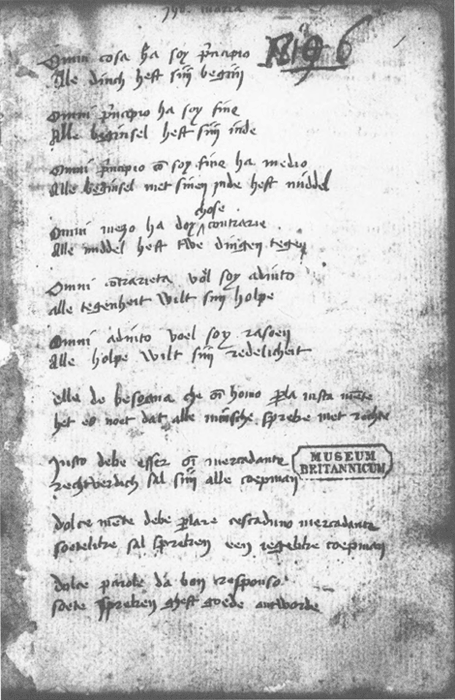 jhs. maria
1896
Omni cosa ha soy principio
Alle dinch heft siin begiin
Omni principio ha soy fine
Alle beginsel heft siin inde
Omni principio con soy fine ha medio
Alle beginsel met sinen inde heft middel
chose
Omni mezo ha doy contrarie
Alle middel heft twe dingen tegen
Omni contrarieta vol soy adiuto
alle tegenheit wilt siin holpe
Omni adiuto voel soy rasoen
Alle holpe wilt siin redelicheit
ella de besoana che omni homo parla iusta mente
het es noet dat alle minsche spreke met rechte
Justo debe esser omni mercadante
MUSEUM
BRITANNICUM
rechtverdich sal siin alle coepman
dolce mente debe parlare cescaduno mercadante
soetelike sal spreken een iegelike coepman
dolce parole da bon responso
soete spreken gheft goede antworde